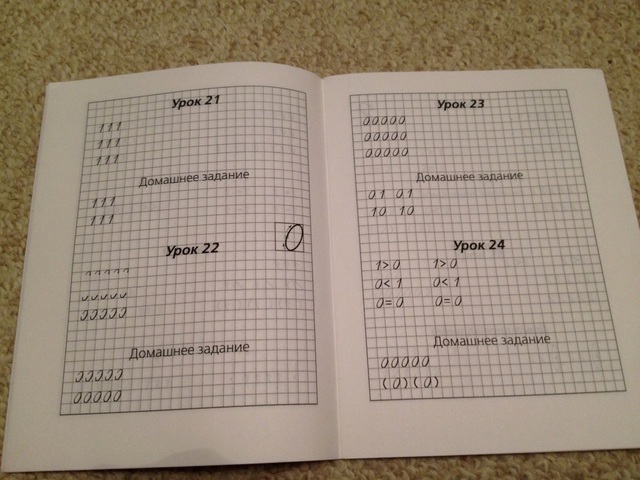 Урок 21
111
111
111
Домашнее задание
111
111
0
Урок 22
00000
Домашнее задание
00000
00000
Урок 23
00000
00000
00000
Домашнее задание
01 01
10 10
Урок 24
1>0 1>0
0<1 0<1
0=0 0=0
Домашнее задание
00000
(0)(0)